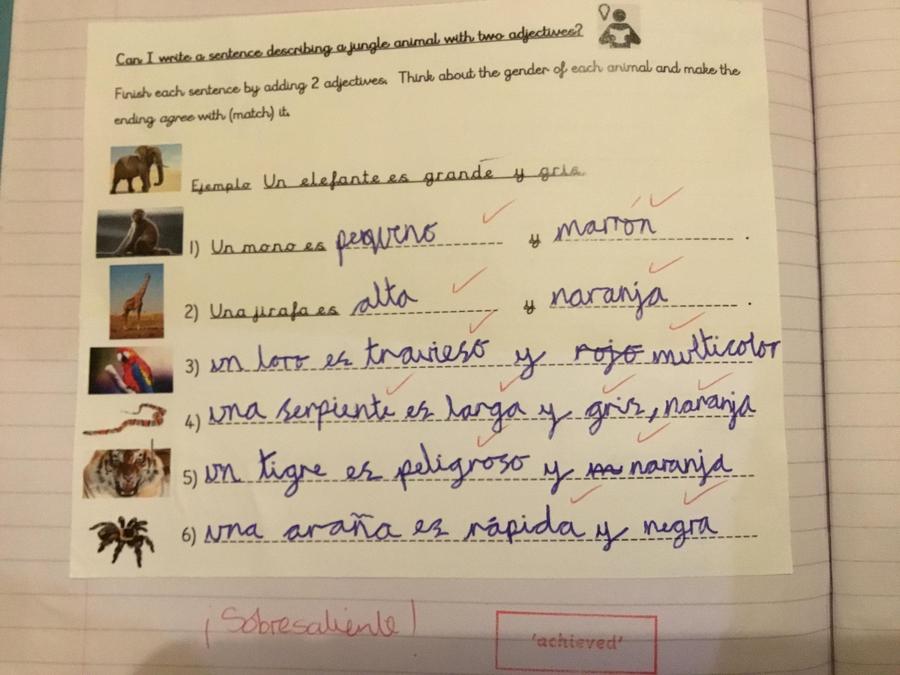 Can I write a sentence describing a jungle animal with two adjectives?
Finish each sentence by adding 2 adjectives. Think about the gender of each animal and make the
ending agree with (match) it.
Ejemplo Un elefante es grande y gris.
1) Un mono es pequeno y marrón .
2) Una jirafa es alta y naranja .
3) un loro es travieso y rojo multicolor
4) una serpiente es larga y gris, naranja
5) un tigre es peligroso y naranja
6) una araña es rápida y negra
¡Sobresaliente!
'achieved'